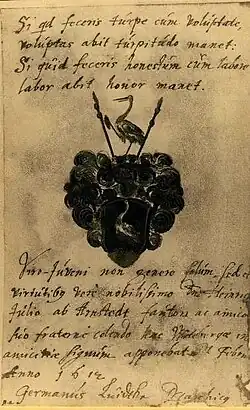 Si qd feceris turpe cum voluptate
voluptas abit turpitudo manet:
Si quid feceris honestum cum labore
labor abit honor manet.
Viro Juveni non genere solum, sed et
virtutibus vere nobilissimo Dn. Heinr
Julio ab Arnstedt fautori ac amico
suo fraterno colendo hac
amicitiae signum apponebat Febr.
Anno 1612
Germanus Luidtke